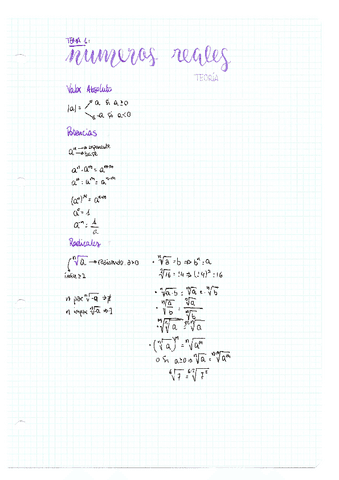 TEMA 1:
números reales
TEORÍA
Valor Absoluto
|a| = a si a≥0
-a si a<0
Potencias
aⁿ → exponente
→ base
aⁿ · aᵐ = aⁿ⁺ᵐ
aⁿ : aᵐ = aⁿ⁻ᵐ
(aⁿ)ᵐ = aⁿ·ᵐ
a⁰ = 1
a⁻ⁿ = 1/a
Radicales
ⁿ√a → radicando
índice ≥ 2
n par ⁿ√-a → ∄
n impar ⁿ√a → ∃
• ⁿ√a = b ⇒ bⁿ = a
• ⁿ√a·b = ⁿ√a · ⁿ√b
• ⁿ√a/b = ⁿ√a / ⁿ√b
• (ⁿ√a)ᵐ = ⁿ√aᵐ